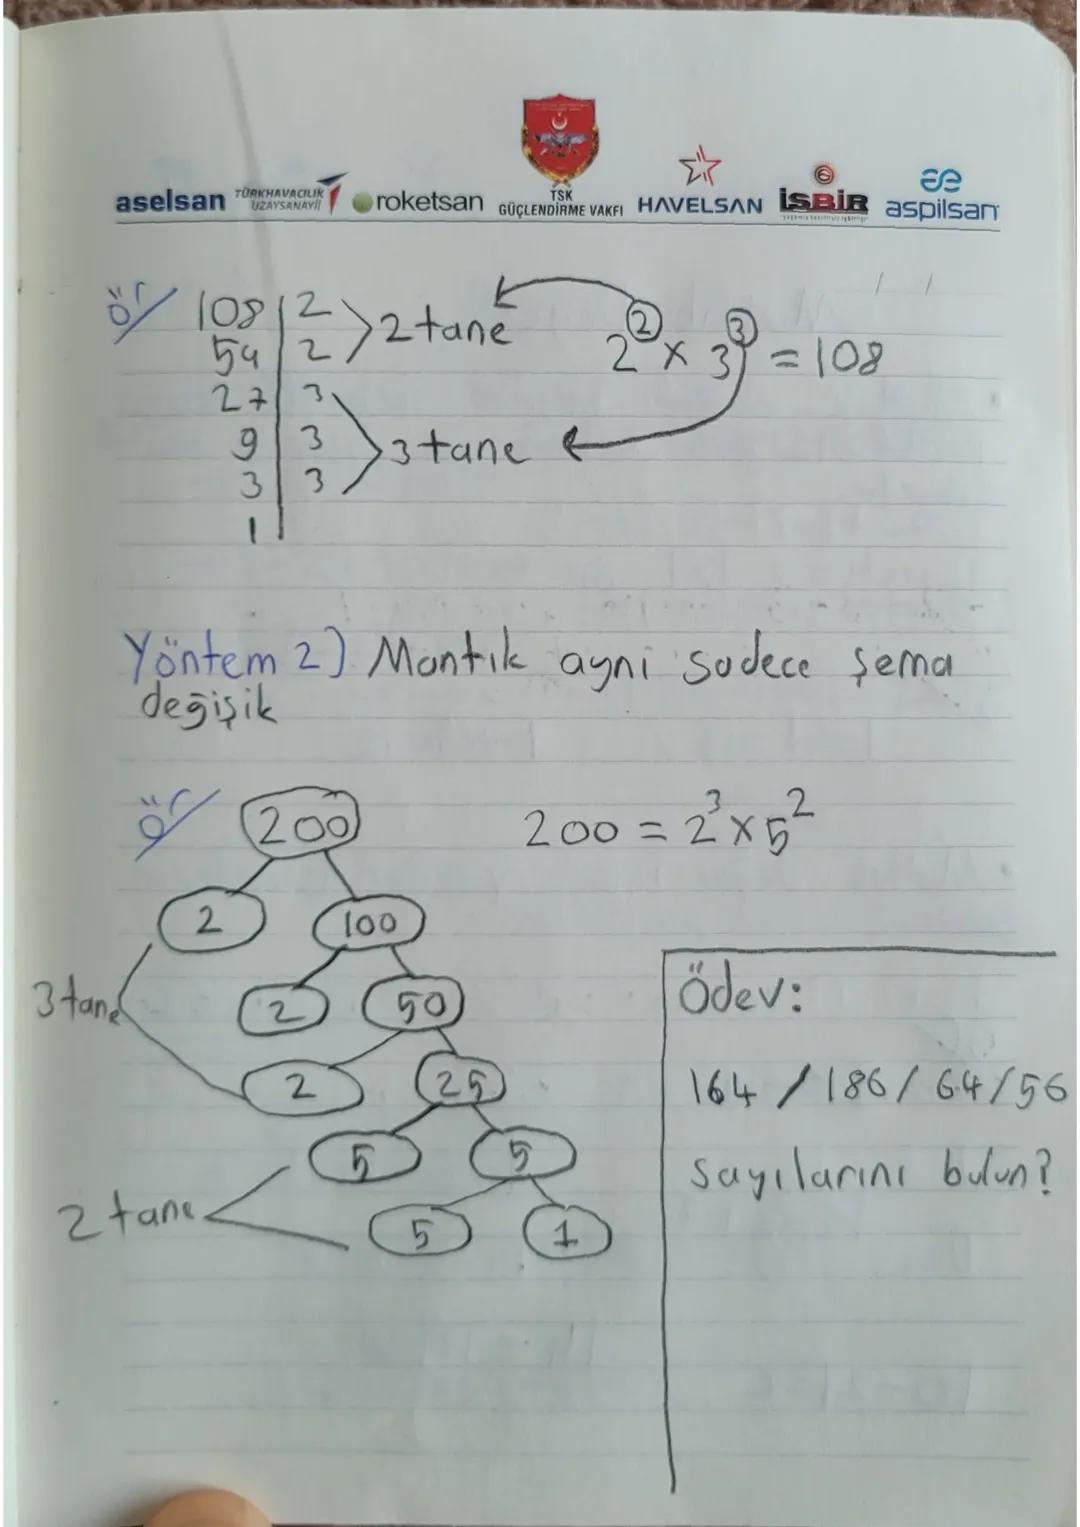 aselsan TÜRK HAVACILIK UZAY SANAYİİ roketsan TSK GÜÇLENDİRME VAKFI HAVELSAN İŞBİR aspilsan
ör/ 108 | 2
54 | 2
2 tane
2² x 3³ = 108
27 | 3
9 | 3
3 | 3
3 tane
1
Yöntem 2) Mantık ayni sadece şema
değişik
ör/ 200
200 = 2³ x 5²
2 100
3 tane
2 50
2 25
5 5
2 tane
5 1
Ödev:
164 / 186 / 64 / 56
sayılarını bulun?